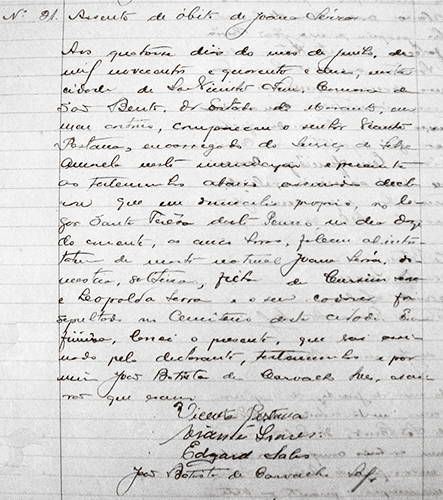 Nº 91. Assento de óbito de Joana Serra
Aos quatorze dias do mes de junho, de
mil novecentos e quarenta e dois, nesta
cidade de São Vicente Ferrer, Comarca de
São Bento, do Estado do Maranhão, em
meu cartorio, compareceu o senhor Vicente
Pestana, encarregado do Serviço de Febre
Amarela neste municipio e perante
as testemunhas abaixo assinadas decla
rou que em domicilio proprio, no lo
gar Santa Tereza deste Termo no dia doze
do corrente, as onze horas, faleceu
de morte natural Joana Serra, do
mestica, solteira, filha de
e Leopolda Serra e o seu cadaver foi
sepultado no Cemiterio desta cidade. Eu
firmeza, lavrei o presente, que vai assi
nado pelo declarante, testemunhas e por
mim João Batista de Carvalho escri
vão que escrevi
Vicente Pestana
Soares
Edgard Sales
João Batista de Carvalho